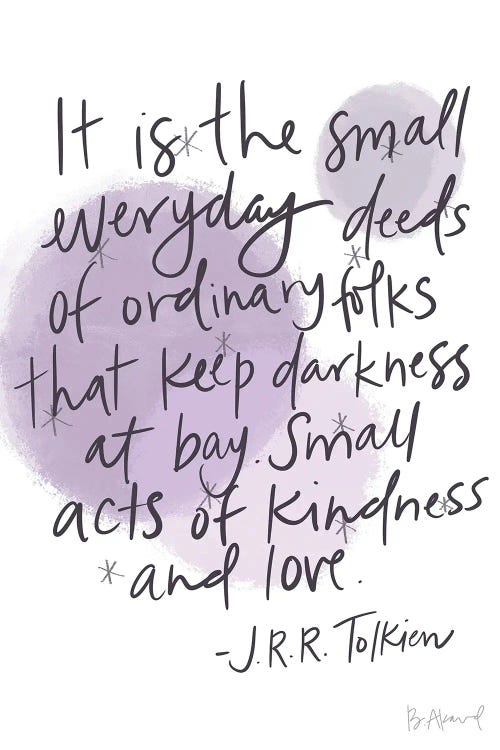 It is the small
everyday deeds
of ordinary folks
that keep darkness
at bay. Small
acts of kindness
and love.
-J.R.R. Tolkien